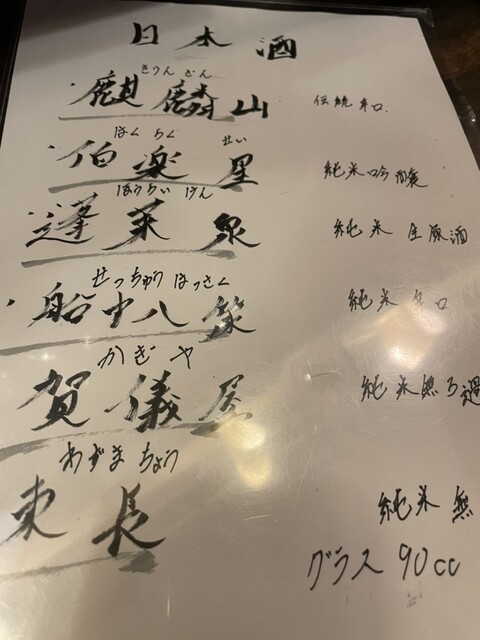 日本酒
きりん ざん
麒麟山 伝統辛口
はく らく せい
伯楽星 純米吟醸
ほうらい せん
蓬莱泉 純米 生原酒
せっちゅう はっさく
船中八策 純米 辛口
かぎや
賀儀屋 純米無ろ過
あずま ちょう
東長 純米 無
グラス 90cc